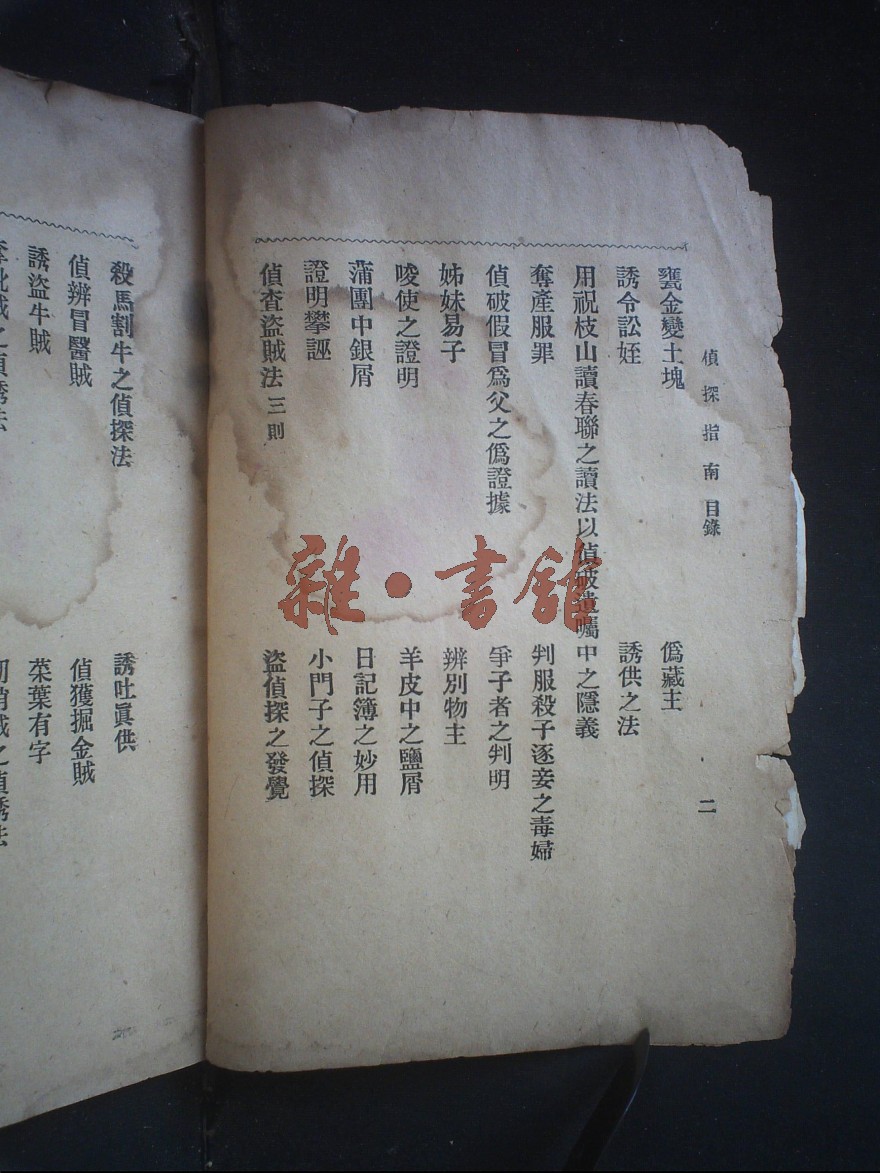 偵探指南 目錄 二
甕金變土塊 僞藏主
誘令訟姪 誘供之法
用祝枝山讀春聯之讀法以偵破遺囑中之隱義
奪產服罪 判服殺子逐妾之毒婦
偵破假冒爲父之僞證據 爭子者之判明
姊妹易子 辨別物主
唆使之證明 羊皮中之鹽屑
蒲團中銀屑 日記簿之妙用
證明攀誣 小門子之偵探
偵查盜賊法 三則 盜偵探之發覺
殺馬割牛之偵探法 誘吐眞供
偵辨冒醫賊 偵獲掘金賊
誘盜牛賊 菜葉有字
賊之偵誘法 賊之偵誘法
雜·書館